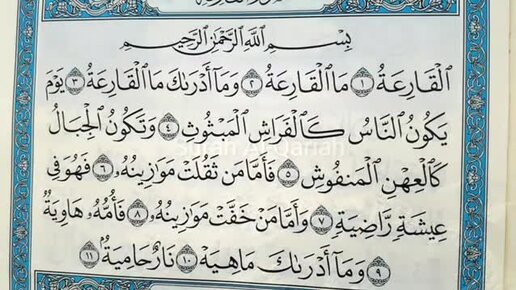 بِسْمِ ٱللَّهِ ٱلرَّحْمَٰنِ ٱلرَّحِيمِ
ٱلْقَارِعَةُ ١ مَا ٱلْقَارِعَةُ ٢ وَمَآ أَدْرَىٰكَ مَا ٱلْقَارِعَةُ ٣ يَوْمَ
يَكُونُ ٱلنَّاسُ كَٱلْفَرَاشِ ٱلْمَبْثُوثِ ٤ وَتَكُونُ ٱلْجِبَالُ
Surah Al-Qariah
كَٱلْعِهْنِ ٱلْمَنفُوشِ ٥ فَأَمَّا مَن ثَقُلَتْ مَوَٰزِينُهُۥ ٦ فَهُوَ فِى
عِيشَةٍ رَّاضِيَةٍ ٧ وَأَمَّا مَنْ خَفَّتْ مَوَٰزِينُهُۥ ٨ فَأُمُّهُۥ هَاوِيَةٌ
٩ وَمَآ أَدْرَىٰكَ مَا هِيَهْ ١٠ نَارٌ حَامِيَةٌۢ ١١